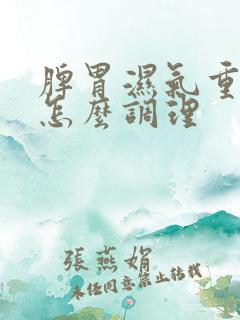 脾胃濕氣重
怎麼調理
張燕娟
未经同意禁止转载